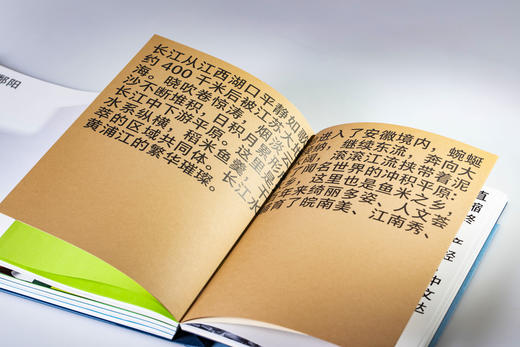 鄱阳
长江从江西湖口平静如 进入了安徽境内，蜿蜒
约400千米后被江苏 ，继续东流，奔向大
海。晓吹卷惊涛，烟淡 阔，滚滚江流挟带着泥
沙不断堆积，日积月累 了闻名世界的冲积平原：
长江中下游平原。这里 ，这里也是鱼米之乡
水系纵横，稻米鱼 生来绮丽多姿、人文荟
萃的区域共同体。长江水 育了皖南美、江南秀、
黄浦江的繁华璀璨。
直
缩
终
产
经
中
文
达